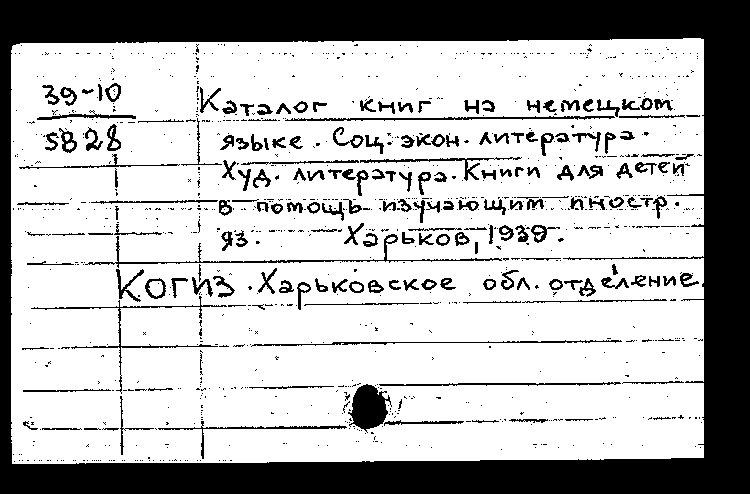 39-10
5828
Каталог книг на немецком
языке. Соц. экон. литература.
Худ. литература. Книги для детей
в помощь изучающим иностр.
яз. Харьков, 1939.
КОГИЗ. Харьковское обл. отделение.